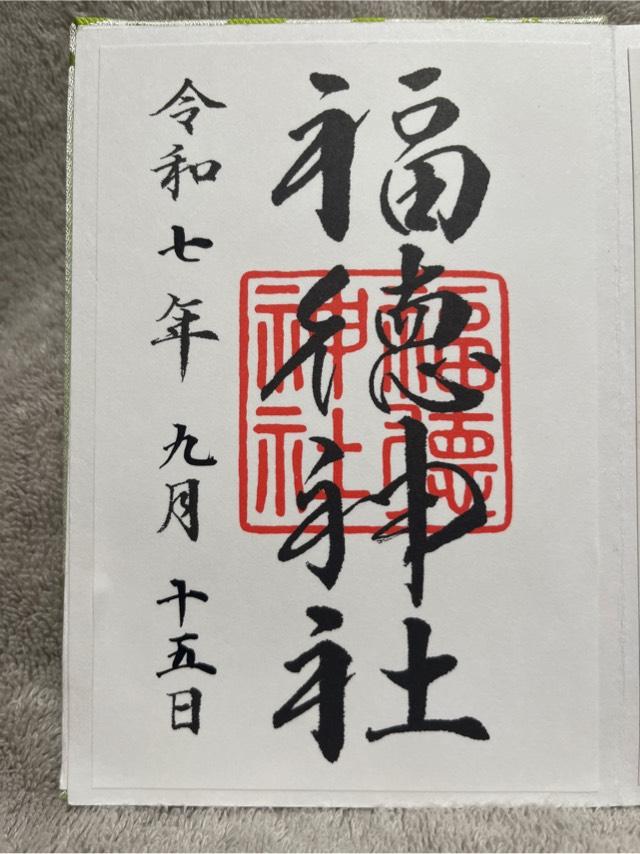 福徳神社
福徳神社
令和七年 九月 十五日